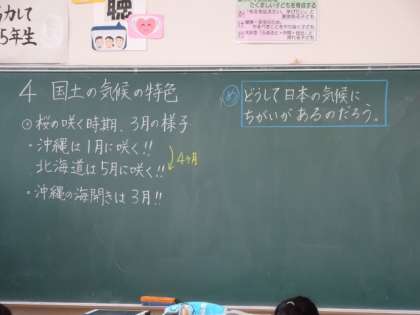 力して
5年生
聴
たくましい子どもを育成する
4 国土の気候の特色
◎桜の咲く時期、3月の様子
・沖縄は1月に咲く!!
北海道は5月に咲く!!
4ヶ月
・沖縄の海開きは3月!!
め どうして日本の気候に
ちがいがあるのだろう。